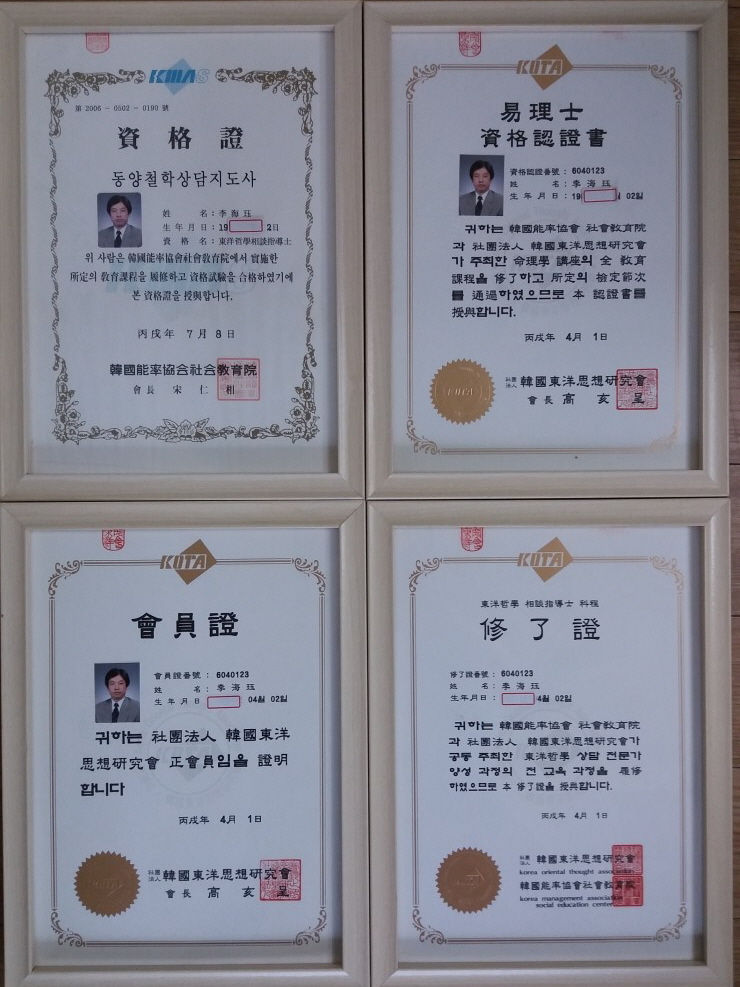 KMAS
第 2006 - 0502 - 0190 號
資格證
동양철학상담지도사
姓 名 : 李海珏
生年月日 : 19 2日
資 格 名 : 東洋哲學相談指導士
위 사람은 韓國能率協會社會敎育院에서 實施한
所定의 敎育課程을 履修하고 資格試驗을 合格하였기에
본 資格證을 授與합니다.
丙戌年 7月 8日
韓國能率協会社会敎育院
會長 宋仁相
KOTA
易理士
資格認證書
資格認證番號 : 6040123
姓 名 : 李海珏
生年月日 : 19 月 02日
귀하는 韓國能率協會 社會敎育院
과 社團法人 韓國東洋思想硏究會
가 주최한 命理學 講座의 全 敎育
課程을 修了하고 所定의 檢定節次
를 通過하였으므로 本 認證書를
授與합니다.
丙戌年 4月 1日
KOTA
社團法人 韓國東洋思想硏究會
會長 高亥呈
KOTA
會員證
會員證番號 : 6040123
姓 名 : 李海珏
生年月日 : 04월 02日
귀하는 社團法人 韓國東洋
思想硏究會 正會員임을 證明
합니다
丙戌年 4月 1日
社團法人 韓國東洋思想硏究會
會長 高亥呈
KOTA
東洋哲學 相談指導士 科程
修了證
修了證番號 : 6040123
姓 名 : 李海珏
生年月日 : 4월 02日
귀하는 韓國能率協會 社會敎育院
과 社團法人 韓國東洋思想硏究會가
공동 주최한 東洋哲學 상담 전문가
양성 과정의 전 교육 과정을 履修
하였으므로 本 修了證을 授與합니다.
丙戌年 4月 1日
社團法人 韓國東洋思想硏究會
korea oriental thought association
韓國能率協會社會敎育院
korea management association
social education center.